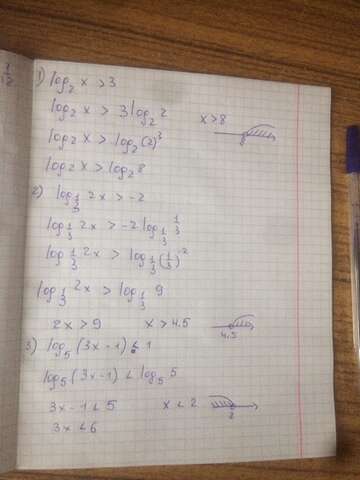 1) log₂ x > 3
log₂ x > 3 log₂ 2
x > 8
8
log₂ x > log₂ (2)³
log₂ x > log₂ 8
2) log_{1/3} 2x > -2
log_{1/3} 2x > -2 log_{1/3} 1/3
log_{1/3} 2x > log_{1/3} (1/3)⁻²
log_{1/3} 2x > log_{1/3} 9
2x > 9 x > 4.5
4.5
3) log₅ (3x-1) < 1
log₅ (3x-1) < log₅ 5
3x-1 < 5 x < 2
2
3x < 6